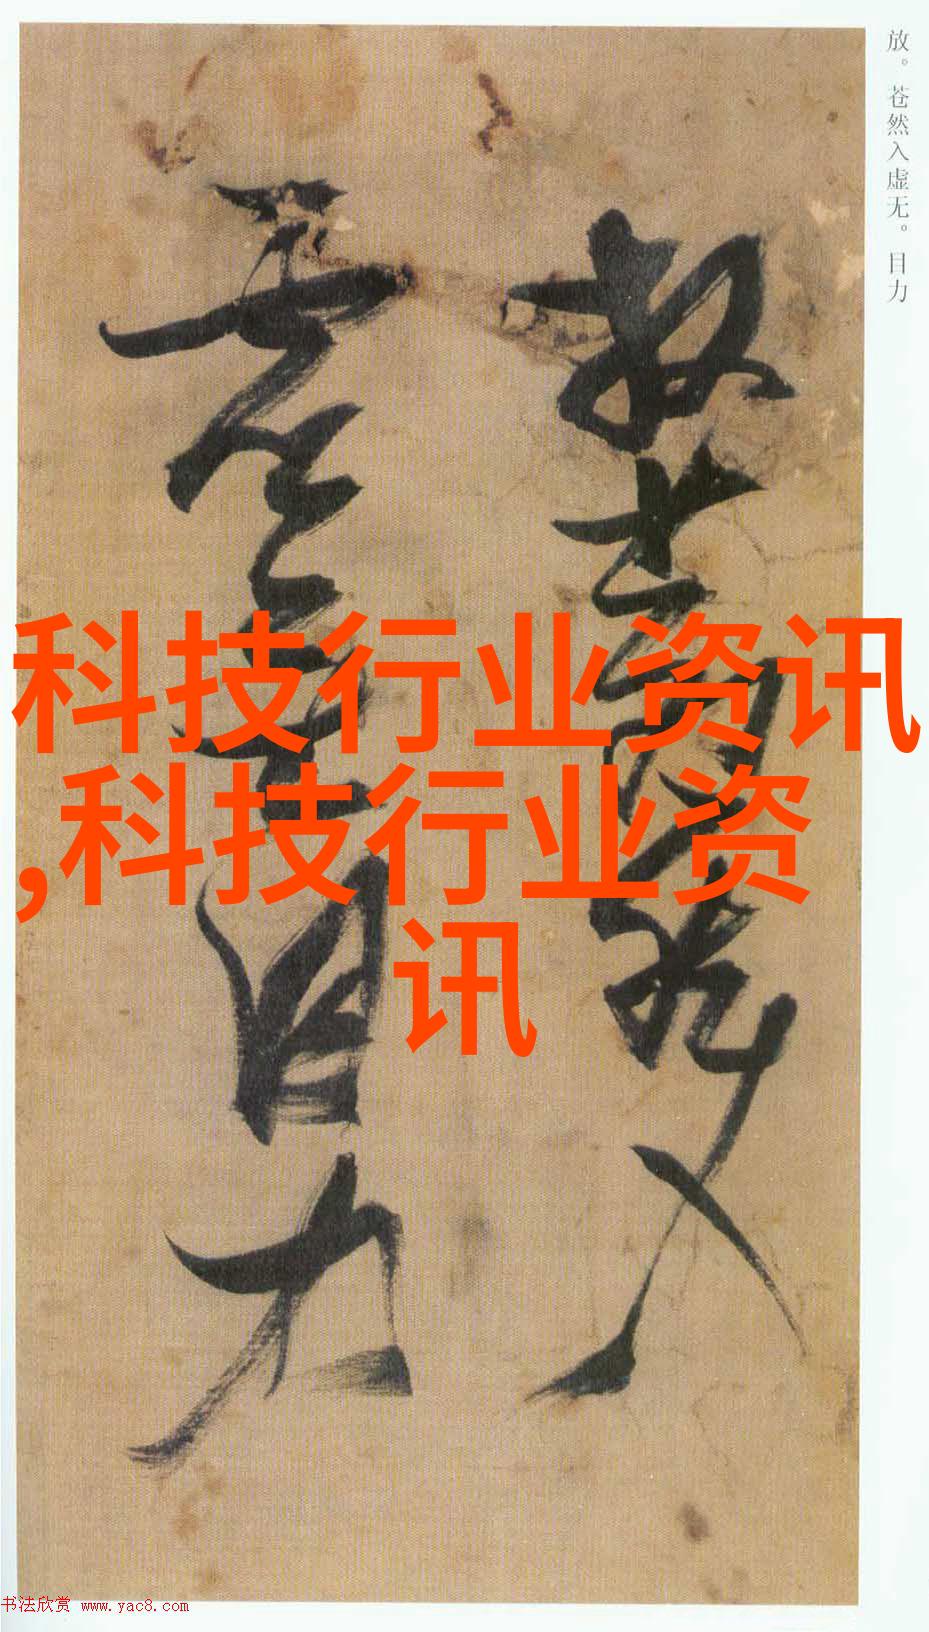 放。苍然入虚无。目力
放苍然入
虚无目力
科技行业资讯
,科技行业资
讯
书法欣赏 www.yac8.com